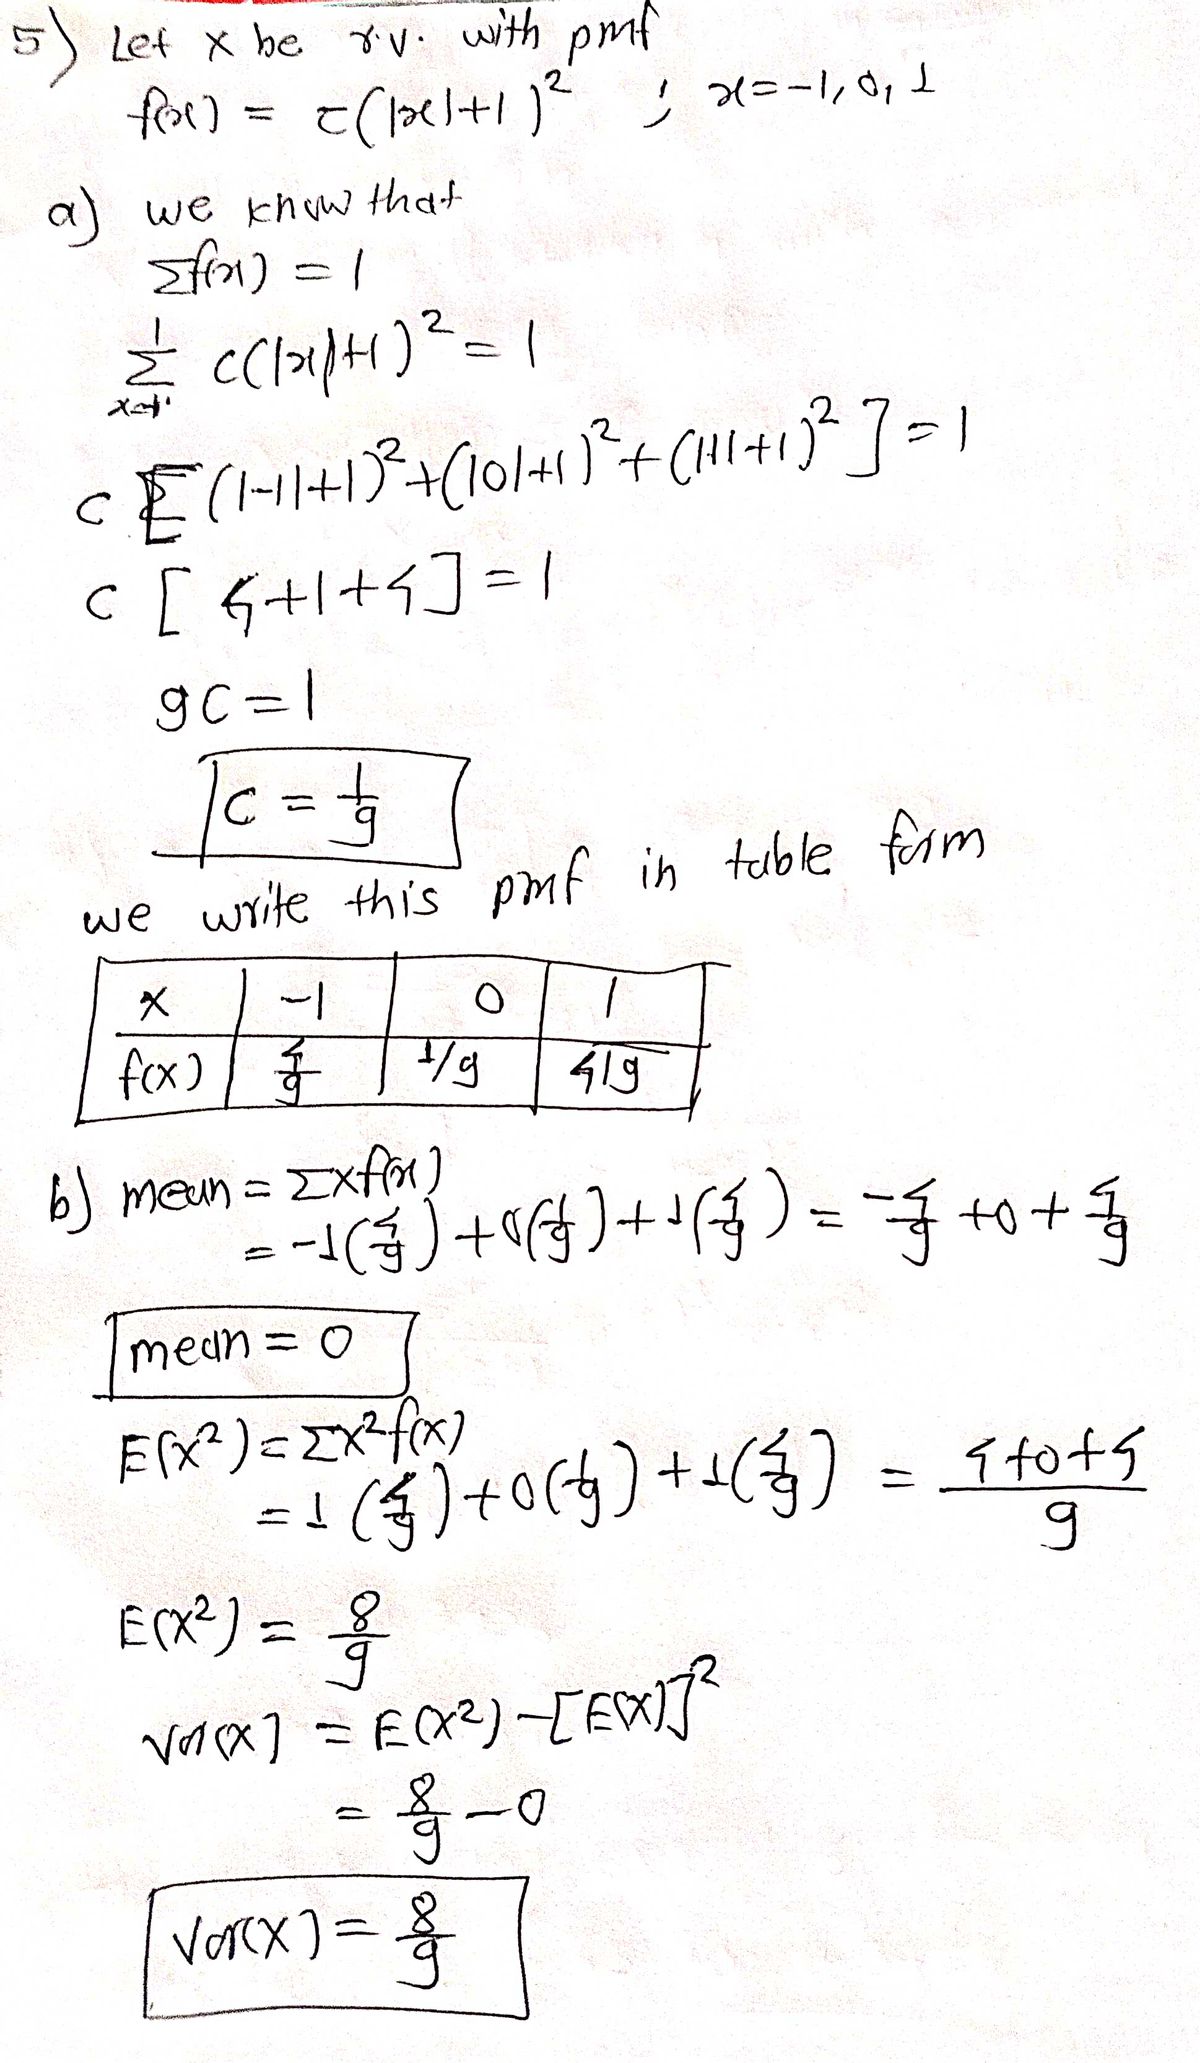 5) Let x be r.v. with pmf
f(x) = c(|x|+1)² ; x=-1,0,1
a) we know that
Σf(x) = 1
1
Σ c(|x|+1)² = 1
x=-1
c[(|-1|+1)²+(|0|+1)²+(|1|+1)²] = 1
c[4+1+4] = 1
9c = 1
c = 1/9
we write this pmf in table form
x | -1 | 0 | 1
f(x) | 4/9 | 1/9 | 4/9
b) mean = Σxf(x)
= -1(4/9)+0(1/9)+1(4/9) = -4/9 +0+ 4/9
mean = 0
E(x²) = Σx²f(x)
= 1(4/9)+0(1/9)+1(4/9) = 4+0+4/9
E(x²) = 8/9
Var(x) = E(x²)-[E(x)]²
= 8/9 - 0
Var(x) = 8/9